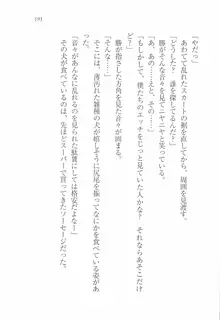 193
「やだっ」
あわてて乱れたスカートの裾を直し、周囲を見渡す。
「どうした？　誰を探してるんだ？」
勝がそんな音々を見てニヤニヤと笑っている。
「あ、あの……えと、その……」
「もしかして、僕たちのエッチをじっと見ていた人かな？　それならあそこだけど」
勝が指さした方角を見た音々が固まる。
そこには、薄汚れた雑種の犬が嬉しそうに尻尾を振ってなにかを食べている姿があった。
「音々があんなに乱れるのを見られた駄賃にしては格安だよなー」
その犬が食べているものは、先ほどスーパーで買ってきたソーセージだった。